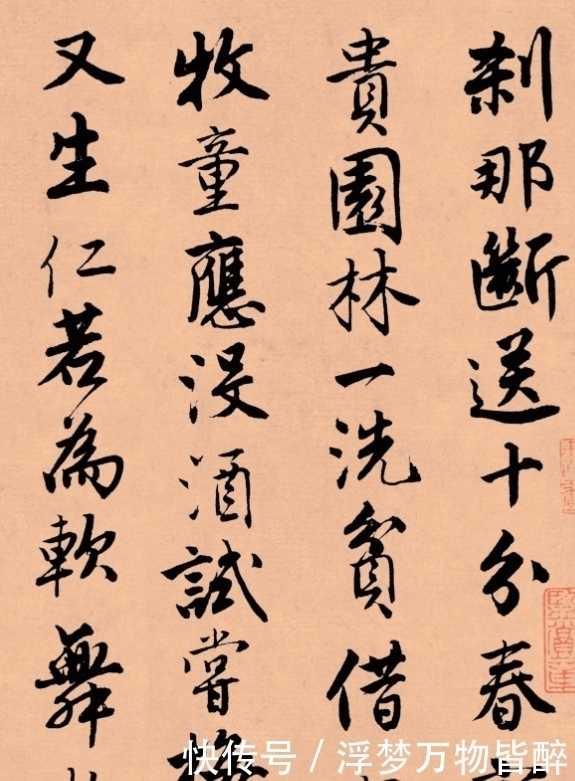 剎那斷送十分春
貴園林一洗貧借
牧童應沒酒試嘗
又生仁若為軟舞
快传号 / 浮梦万物皆醉